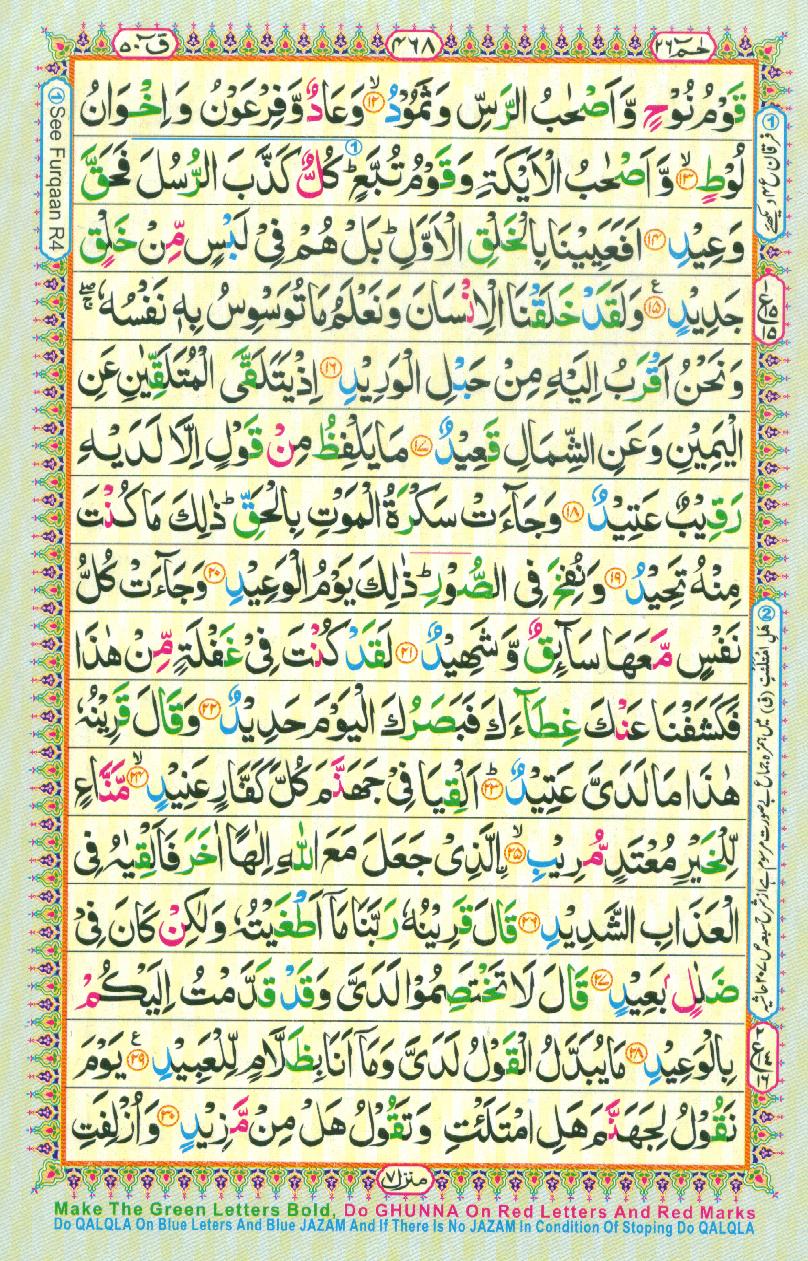 حٰمٓ ۲۶
۴۶۸
قٓ ۵۰
قَوْمُ نُوْحٍ وَّاَصْحٰبُ الرَّسِّ وَثَمُوْدُ ۙ‏﴿۱۲﴾ وَعَادٌ وَّفِرْعَوْنُ وَاِخْوَانُ
لُوْطٍ ۙ‏﴿۱۳﴾ وَّاَصْحٰبُ الْاَيْكَةِ وَقَوْمُ تُبَّعٍ ؕ① كُلٌّ كَذَّبَ الرُّسُلَ فَحَقَّ
وَعِيْدِ ﴿۱۴﴾ اَفَعَيِيْنَا بِالْخَلْقِ الْاَوَّلِ ؕ بَلْ هُمْ فِىْ لَبْسٍ مِّنْ خَلْقٍ
جَدِيْدٍ ﴿۱۵﴾ ع وَلَقَدْ خَلَقْنَا الْاِنْسَانَ وَنَعْلَمُ مَا تُوَسْوِسُ بِهٖ نَفْسُهٗ ۚۖ
وَنَحْنُ اَقْرَبُ اِلَيْهِ مِنْ حَبْلِ الْوَرِيْدِ ﴿۱۶﴾ اِذْ يَتَلَقَّى الْمُتَلَقِّيٰنِ عَنِ
الْيَمِيْنِ وَعَنِ الشِّمَالِ قَعِيْدٌ ﴿۱۷﴾ مَا يَلْفِظُ مِنْ قَوْلٍ اِلَّا لَدَيْهِ
رَقِيْبٌ عَتِيْدٌ ﴿۱۸﴾ وَجَآءَتْ سَكْرَةُ الْمَوْتِ بِالْحَقِّ ؕ ذٰلِكَ مَا كُنْتَ
مِنْهُ تَحِيْدُ ﴿۱۹﴾ وَنُفِخَ فِى الصُّوْرِ ؕ ذٰلِكَ يَوْمُ الْوَعِيْدِ ﴿۲۰﴾ وَجَآءَتْ كُلُّ
نَفْسٍ مَّعَهَا سَآئِقٌ وَّشَهِيْدٌ ﴿۲۱﴾ لَقَدْ كُنْتَ فِىْ غَفْلَةٍ مِّنْ هٰذَا
فَكَشَفْنَا عَنْكَ غِطَآءَكَ فَبَصَرُكَ الْيَوْمَ حَدِيْدٌ ﴿۲۲﴾ وَقَالَ قَرِيْنُهٗ
هٰذَا مَا لَدَىَّ عَتِيْدٌ ؕ‏﴿۲۳﴾ اَلْقِيَا فِىْ جَهَنَّمَ كُلَّ كَفَّارٍ عَنِيْدٍ ۙ‏﴿۲۴﴾ مَّنَّاعٍ
لِّلْخَيْرِ مُعْتَدٍ مُّرِيْبِ ۙ‏﴿۲۵﴾ ۨالَّذِىْ جَعَلَ مَعَ اللّٰهِ اِلٰهًا اٰخَرَ فَاَلْقِيٰهُ فِى
الْعَذَابِ الشَّدِيْدِ ﴿۲۶﴾ قَالَ قَرِيْنُهٗ رَبَّنَا مَاۤ اَطْغَيْتُهٗ وَلٰكِنْ كَانَ فِىْ
ضَلٰلٍ ۢ بَعِيْدٍ ﴿۲۷﴾ قَالَ لَا تَخْتَصِمُوْا لَدَىَّ وَقَدْ قَدَّمْتُ اِلَيْكُمْ
بِالْوَعِيْدِ ﴿۲۸﴾ مَا يُبَدَّلُ الْقَوْلُ لَدَىَّ وَمَاۤ اَنَا بِظَلَّامٍ لِّلْعَبِيْدِ ﴿۲۹﴾ ع يَوْمَ
نَقُوْلُ لِجَهَنَّمَ هَلِ امْتَلَئْتِ وَتَقُوْلُ هَلْ مِنْ مَّزِيْدٍ ﴿۳۰﴾ وَاُزْلِفَتِ
منزل ۷
① See Furqaan R4
① فرقان ع ۴
② هَلِ امْتَلَئْتِ (ق) میں
Make The Green Letters Bold, Do GHUNNA On Red Letters And Red Marks
Do QALQLA On Blue Leters And Blue JAZAM And If There Is No JAZAM In Condition Of Stoping Do QALQLA